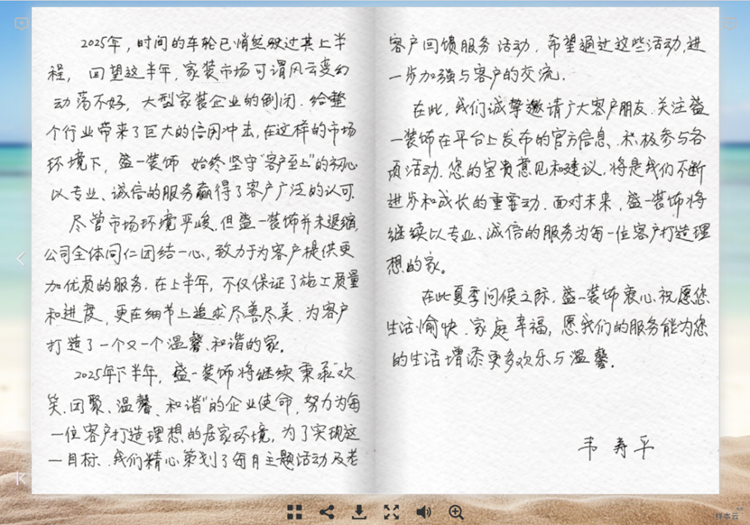 2025年，时间的车轮已悄然驶过其上半
程，回望这半年，家装市场可谓风云变幻
动荡不好，大型家装企业的倒闭，给整
个行业带来了巨大的信用冲击，在这样的市场
环境下，益一装饰 始终坚守"客户至上"的初心
以专业、诚信的服务赢得了客户广泛的认可.
尽管市场环境严峻，但益一装饰并未退缩
公司全体同仁团结一心，致力于为客户提供更
加优质的服务.在上半年，不仅保证了施工质量
和进度，更在细节上追求尽善尽美.为客户
打造了一个又一个温馨、和谐的家。
2025年下半年，益一装饰将继续秉承"欢
笑、团聚、温馨、和谐"的企业使命，努力为每
一位客户打造理想的居家环境，为了实现这
一目标、我们精心策划了每月主题活动及老
客户回馈服务活动，希望通过这些活动，进
一步加强与客户的交流.
在此，我们诚挚邀请广大客户朋友.关注益
一装饰在平台上发布的官方信息、积极参与各
项活动.您的宝贵意见和建议，将是我们不断
进步和成长的重要动.面对未来，益一装饰将
继续以专业、诚信的服务为每一位客户打造理
想的家。
在此夏季问候之际，益一装饰衷心祝愿您
生活愉快、家庭幸福，愿我们的服务能为您
的生活增添更多欢乐与温馨。
韦寿平